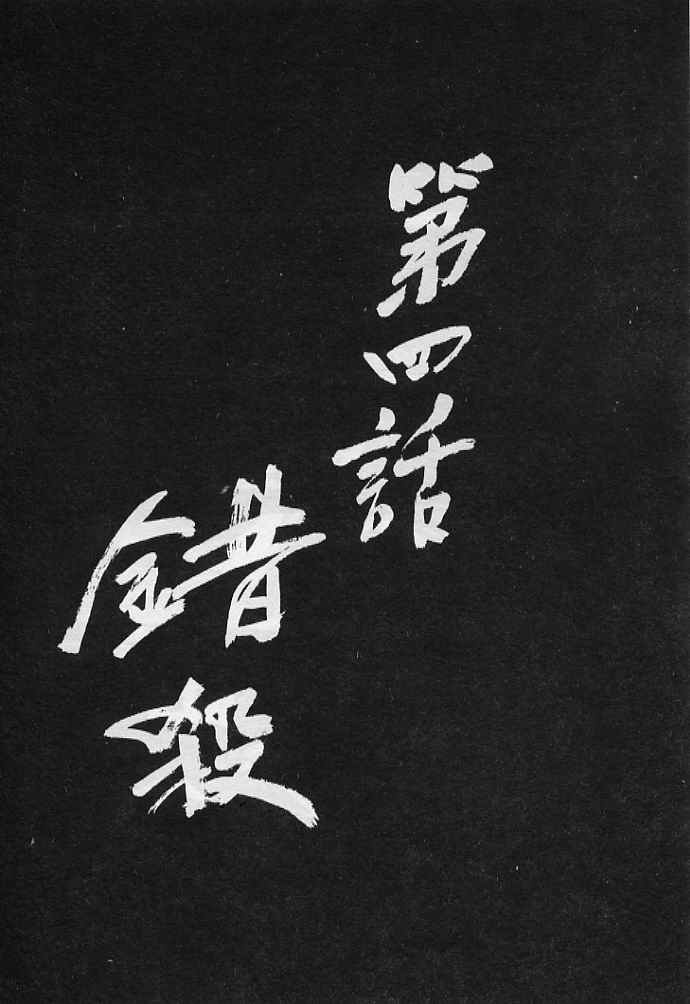 第四話
錯殺